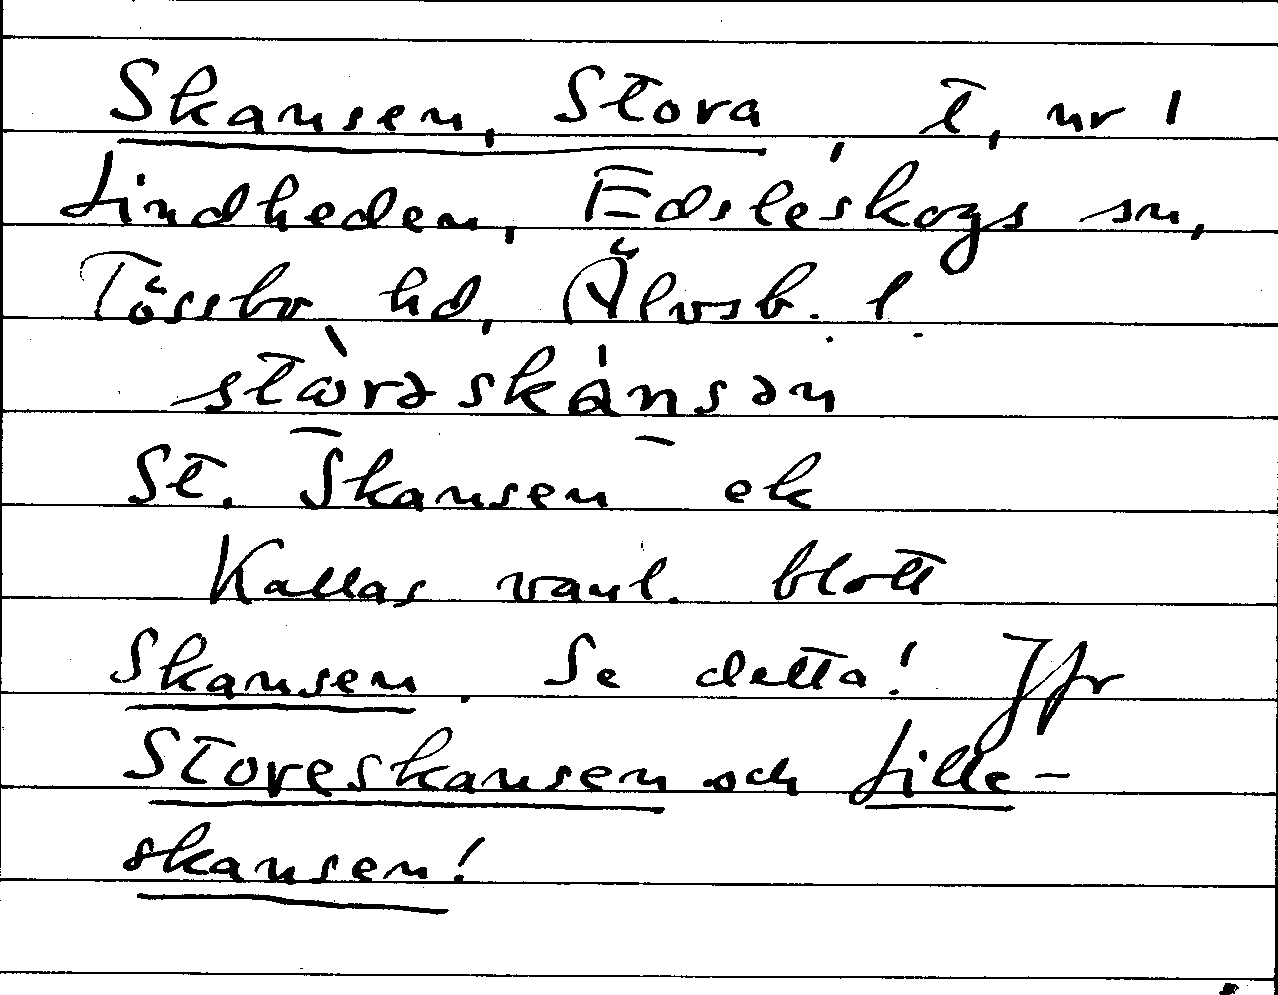 Skansen, Stora, t, nr 1
Lindheden, Edsleskogs sn,
Tössbo hd, Älvsb. l.
stὼrəskánsən
St. Skansen ek
Kallas vanl. blott
Skansen. Se detta! Jfr
Storeskansen och Lille-
skansen!